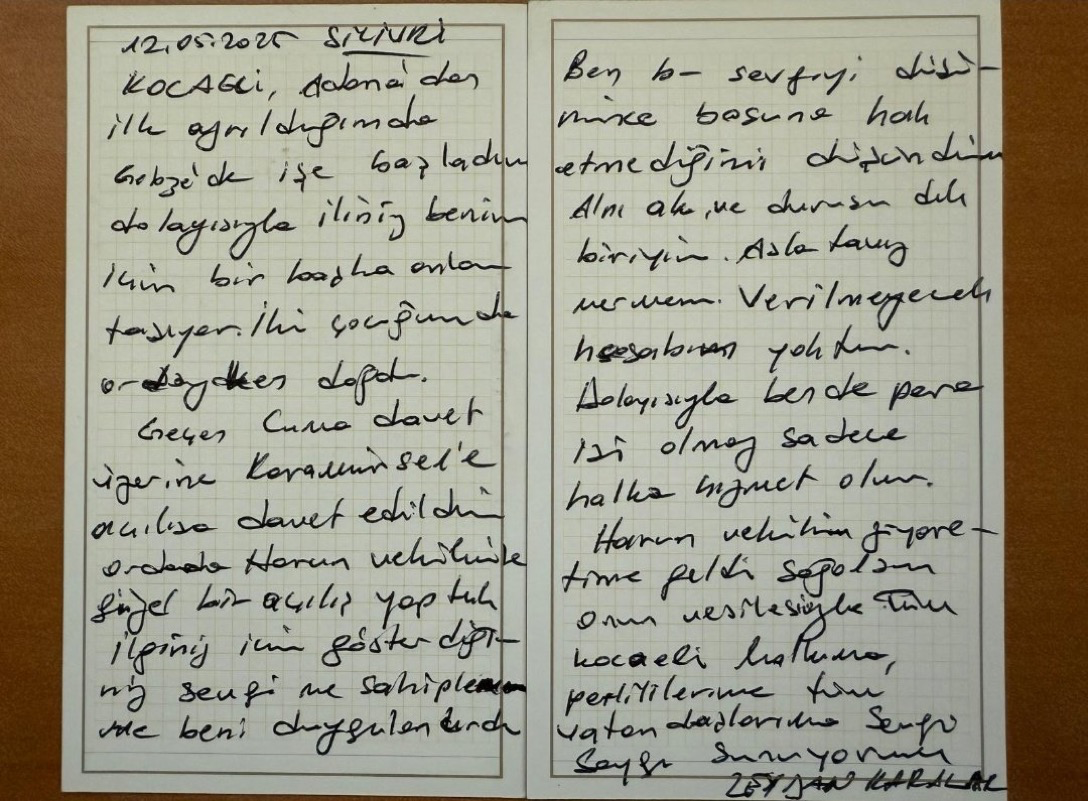 12.05.2025 SİLİVRİ
KOCAELİ, Adana'dan
ilk ayrıldığımda
Gebze'de işe başladım
dolayısıyla iliniz benim
için bir başka anlam
taşıyor. İki çocuğumda
ordayken doğdu.
Geçen Cuma davet
üzerine Karamürsel'e
açılışa davet edildim
orda Harun vekilimle
güzel bir açılış yaptık
ilginiz için gösterdiği-
niz sevgi ve sahiplen
me beni duygulandırdı
Ben bu sevgiyi düşü-
nünce başıma hak
etmediğimi düşündüm
Alnı ak, ve duruşu dik
biriyim. Asla taviz
vermem. Verilmeyecek
hesabım yoktur.
Dolayısıyla bende para
izi olmaz sadece
halka hizmet olur.
Harun vekilim ziyare-
time geldi sağolsun
onun vesilesiyle tüm
kocaeli halkına,
partililerime tüm
vatandaşlarıma sevgi
saygı sunuyorum
ZEYDAN KARALAR